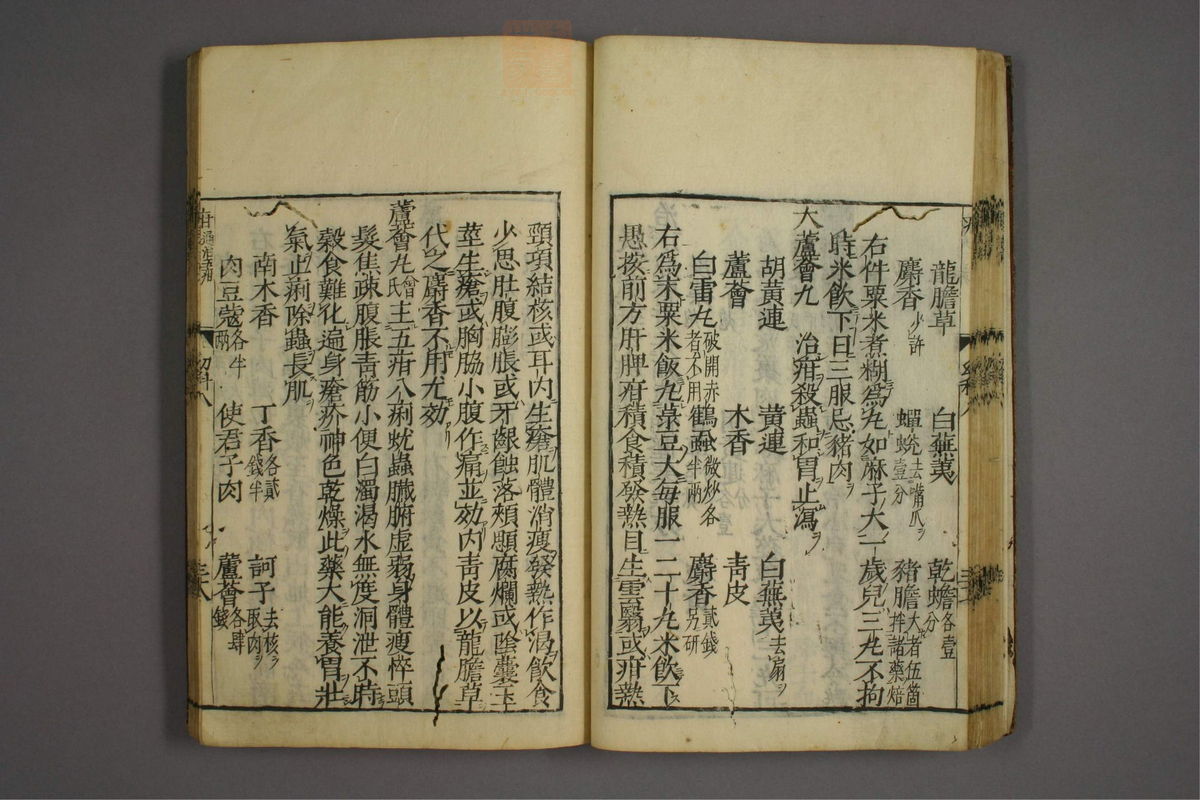 龍膽草 白蕪荑 乾蟾各壹分
麝香少許 蟬蛻去嘴爪壹分 豬膽大者伍箇拌諸藥焙
右件粟米煮糊爲丸如麻子大一歲兒三丸不拘
時米飲下日三服忌豬肉
大蘆薈丸 治疳殺蟲和胃止瀉
胡黃連 黃連 白蕪荑去扇
蘆薈 木香 靑皮
白雷丸破開赤者不用 鶴虱微炒各半兩 麝香貳錢另研
右爲末粟米飯丸菉豆大每服一二十丸米飲下
愚按前方肝脾疳積食積發熱目生雲翳或疳熱
頸項結核或耳內生瘡肌體消瘦發熱作渴飲食
少思肚腹膨脹或牙齦蝕落頰顋腐爛或陰囊玉
莖生瘡或胸脇小腹作痛並效內靑皮以龍膽草
代之麝香不用尤効
蘆薈丸曾氏主五疳八痢蚘蟲臟腑虛弱身體瘦悴頭
髮焦疎腹脹靑筋小便白濁渴水無度洞泄不時
穀食難化遍身瘡疥神色乾燥此藥大能養胃壯
氣止痢除蟲長肌
南木香 丁香各貳錢半 訶子去核取肉
肉豆蔻各半兩 使君子肉 蘆薈各肆錢